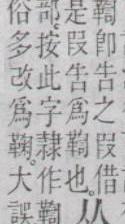 鞫卽告之叚借
是叚告爲鞫也。从
部。按此字隸作鞫
俗多改爲鞠。大誤